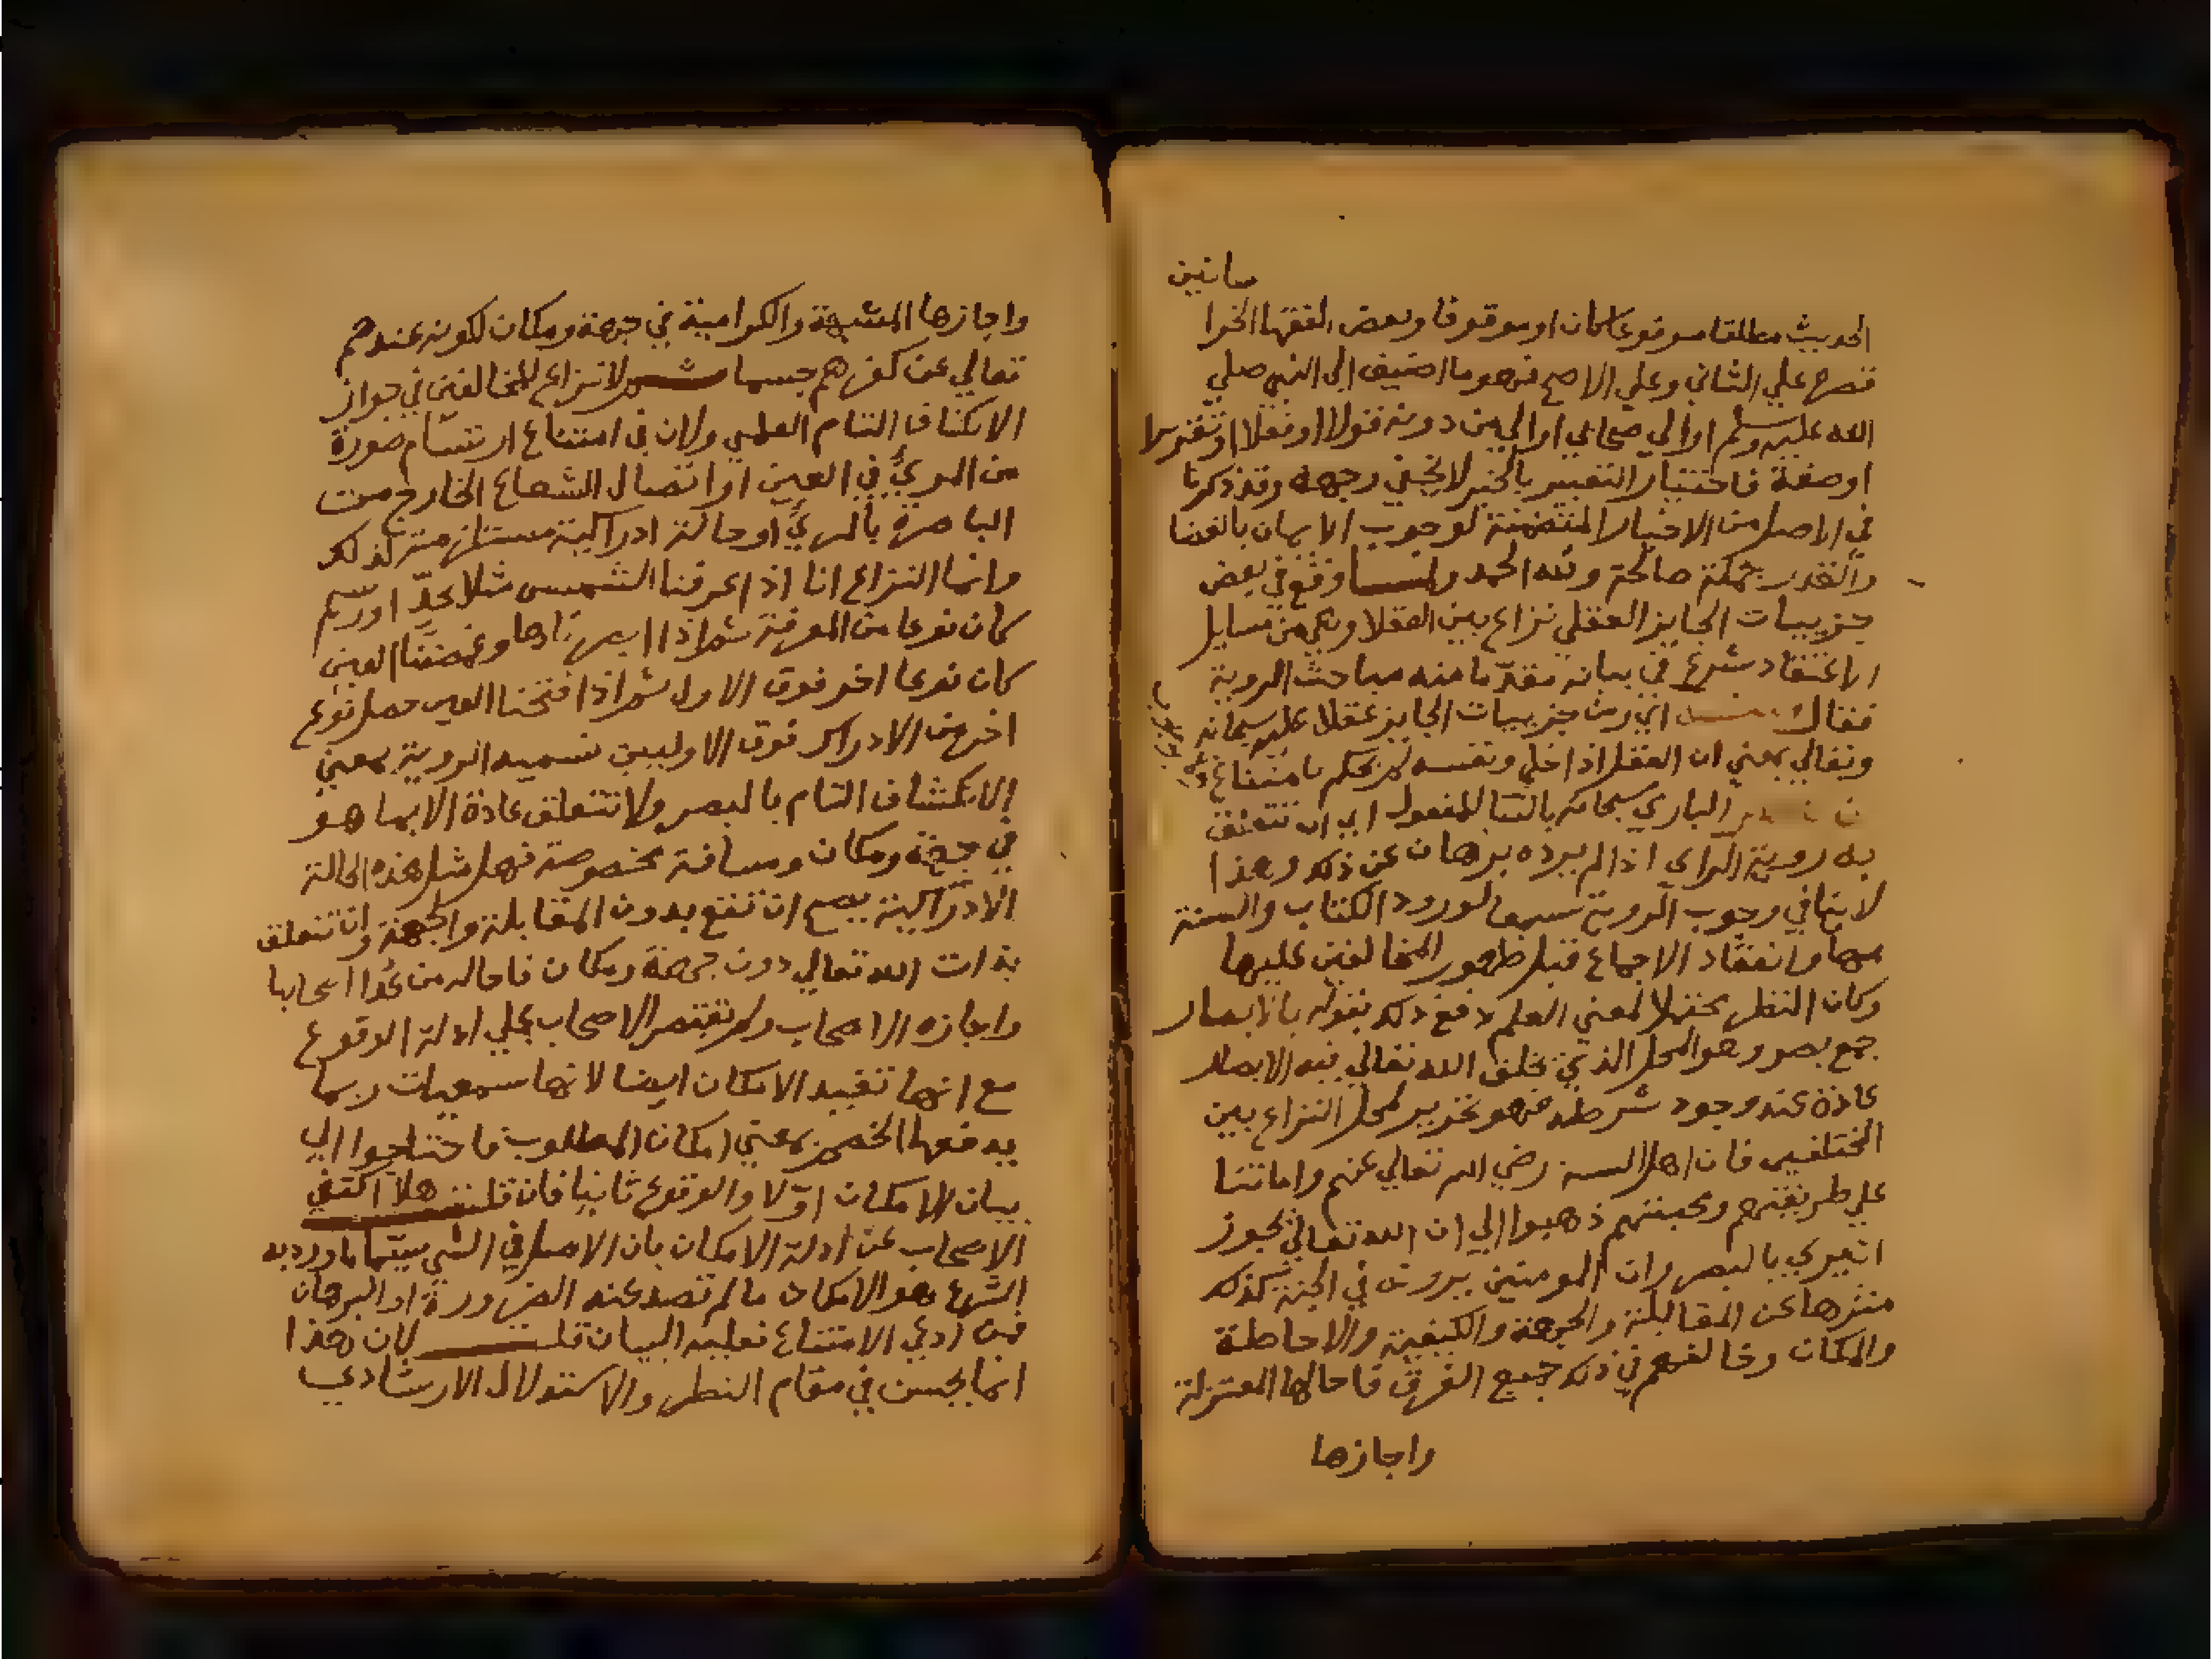 سانين
الحديث مطلقا مرفوعا كان او موقوفا وبعض الفقها الخرا
قصره علي الثاني وعلي الاصح فهو ما اضيف الي النبي صلي
الله عليه وسلم او الي صحابي او الي من دونه قولا او فعلا او تقريرا
او صفة فاختيار التعبير بالخبر لا يخفي وجهه وقد ذكرنا
في الاصل من الاخبار المتضمنة لوجوب الايمان بالقضا
والقدر جمكة صالحة ولله الحمد ولما وقع في بعض
جزييات الجايز العقلي نزاع بين العقلا وهي من مسايل
الاعتقاد شرع في بيانه مقدّما منه مباحث الروية
فقال اي ومن جزييات الجايز عقلا عليه سبحانه
وتعالي بمعني ان العقل اذا خلي ونفسه لم يحكم بامتناع
الباري سبحانه بالبنا للمفعول اي ان تتعلق
به روية الراي اذا لم يرده برهان عن ذلك وهذا
لا ينافي وجوب الروية سمعا لورود الكتاب والسنة
بها وانعقاد الاجماع قبل ظهور المخالفين عليها
وكان النظر محتملا لمعني العلم دفع ذلك بقوله بالابصار
جمع بصر وهو المحل الذي يخلق الله تعالي فيه الابصار
عادة عند وجود شرطه فهو تحرير لمحل النزاع بين
المختلفين فان اهل السنه رضي الله تعالي عنهم واماتنا
علي طريقتهم ومحبتهم ذهبوا الي ان الله تعالي يجوز
ان يري بالبصر وان المومنين يرونه في الجنة كذلك
منزها عن المقابلة والجهة والكيفية والاحاطة
والمكان وخالفهم في ذلك جميع الفرق فاحالها المعتزلة
واجازها
واجازها المشبهة والكرامية في جهة ومكان لكونه عندهم
تعالي عن كفرهم جسما ثم لا نزاع للمخالفين في جواز
الانكشاف التام العلمي ولا ن في امتناع ارتسام صورة
من المريّ في العين او اتصال الشعاع الخارج من
الباصرة بالمريّ او حالة ادراكية مستلزمة لذلك
وانما النزاع انا اذا عرفنا الشمس مثلا بحدّ او رسم
كان نوعا من المعرفة ثم اذا ابصرناها وغمضنا العين
كان نوعا اخر فوق الاول ثم اذا فتحنا العين حصل نوع
اخر من الادراك فوق الاوليين نسميه الروية بمعني
الانكشاف التام بالبصر ولا تتعلق عادة الا بما هو
في جهة ومكان ومسافة مخصوصة فهل مثل هذه الحالة
الادراكية يصح ان تقع بدون المقابلة والجهة وان تتعلق
بذات الله تعالي دون جهة ومكان فاحاله من عدا اصحابنا
واجازه الاصحاب ولم يقتصر الاصحاب علي ادلة الوقوع
مع انها تفيد الامكان ايضا لانها سمعيات ربما
يدفعها الخصم بمعني امكان المطلوب فاحتاجوا الي
بيان الامكان اوّلا والوقوع ثانيا فان قلت هلا اكتفي
الاصحاب عن ادلة الامكان بان الاصل في الشي سيّما ما ورد به
الشرع هو الامكان ما لم تصد عنه الضرورة او البرهان
فمن ادعي الامتناع فعليه البيان قلت لان هذا
انما يحسن في مقام النظر والاستدلال الارشادي